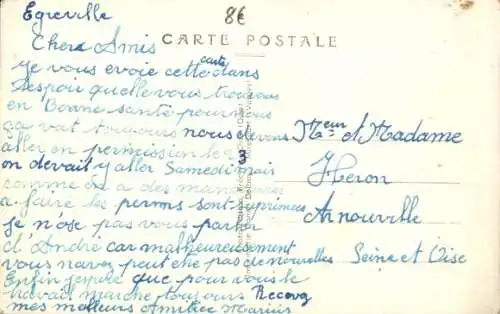 Egreville
8€
CARTE POSTALE
Chers Amis
je vous evoie cette carte dans
l'espou quelle vous trouvous
en Bonne santé pour nous
ça vat toujours nous devons
aller en permission le 3
on devait y aller Samedi mais
comme on a des manœuvres
a faire les perms sont suprimées
je n'ose pas vous parler
d'André car malheureusement
vous navez peut etre pas de nouvelles
Enfin j'espere que pour vous le
travail marche toujours Recevez
mes meilleurs Amitiée Marius
Meur et Madame
Heron
Arnouville
Seine et Oise